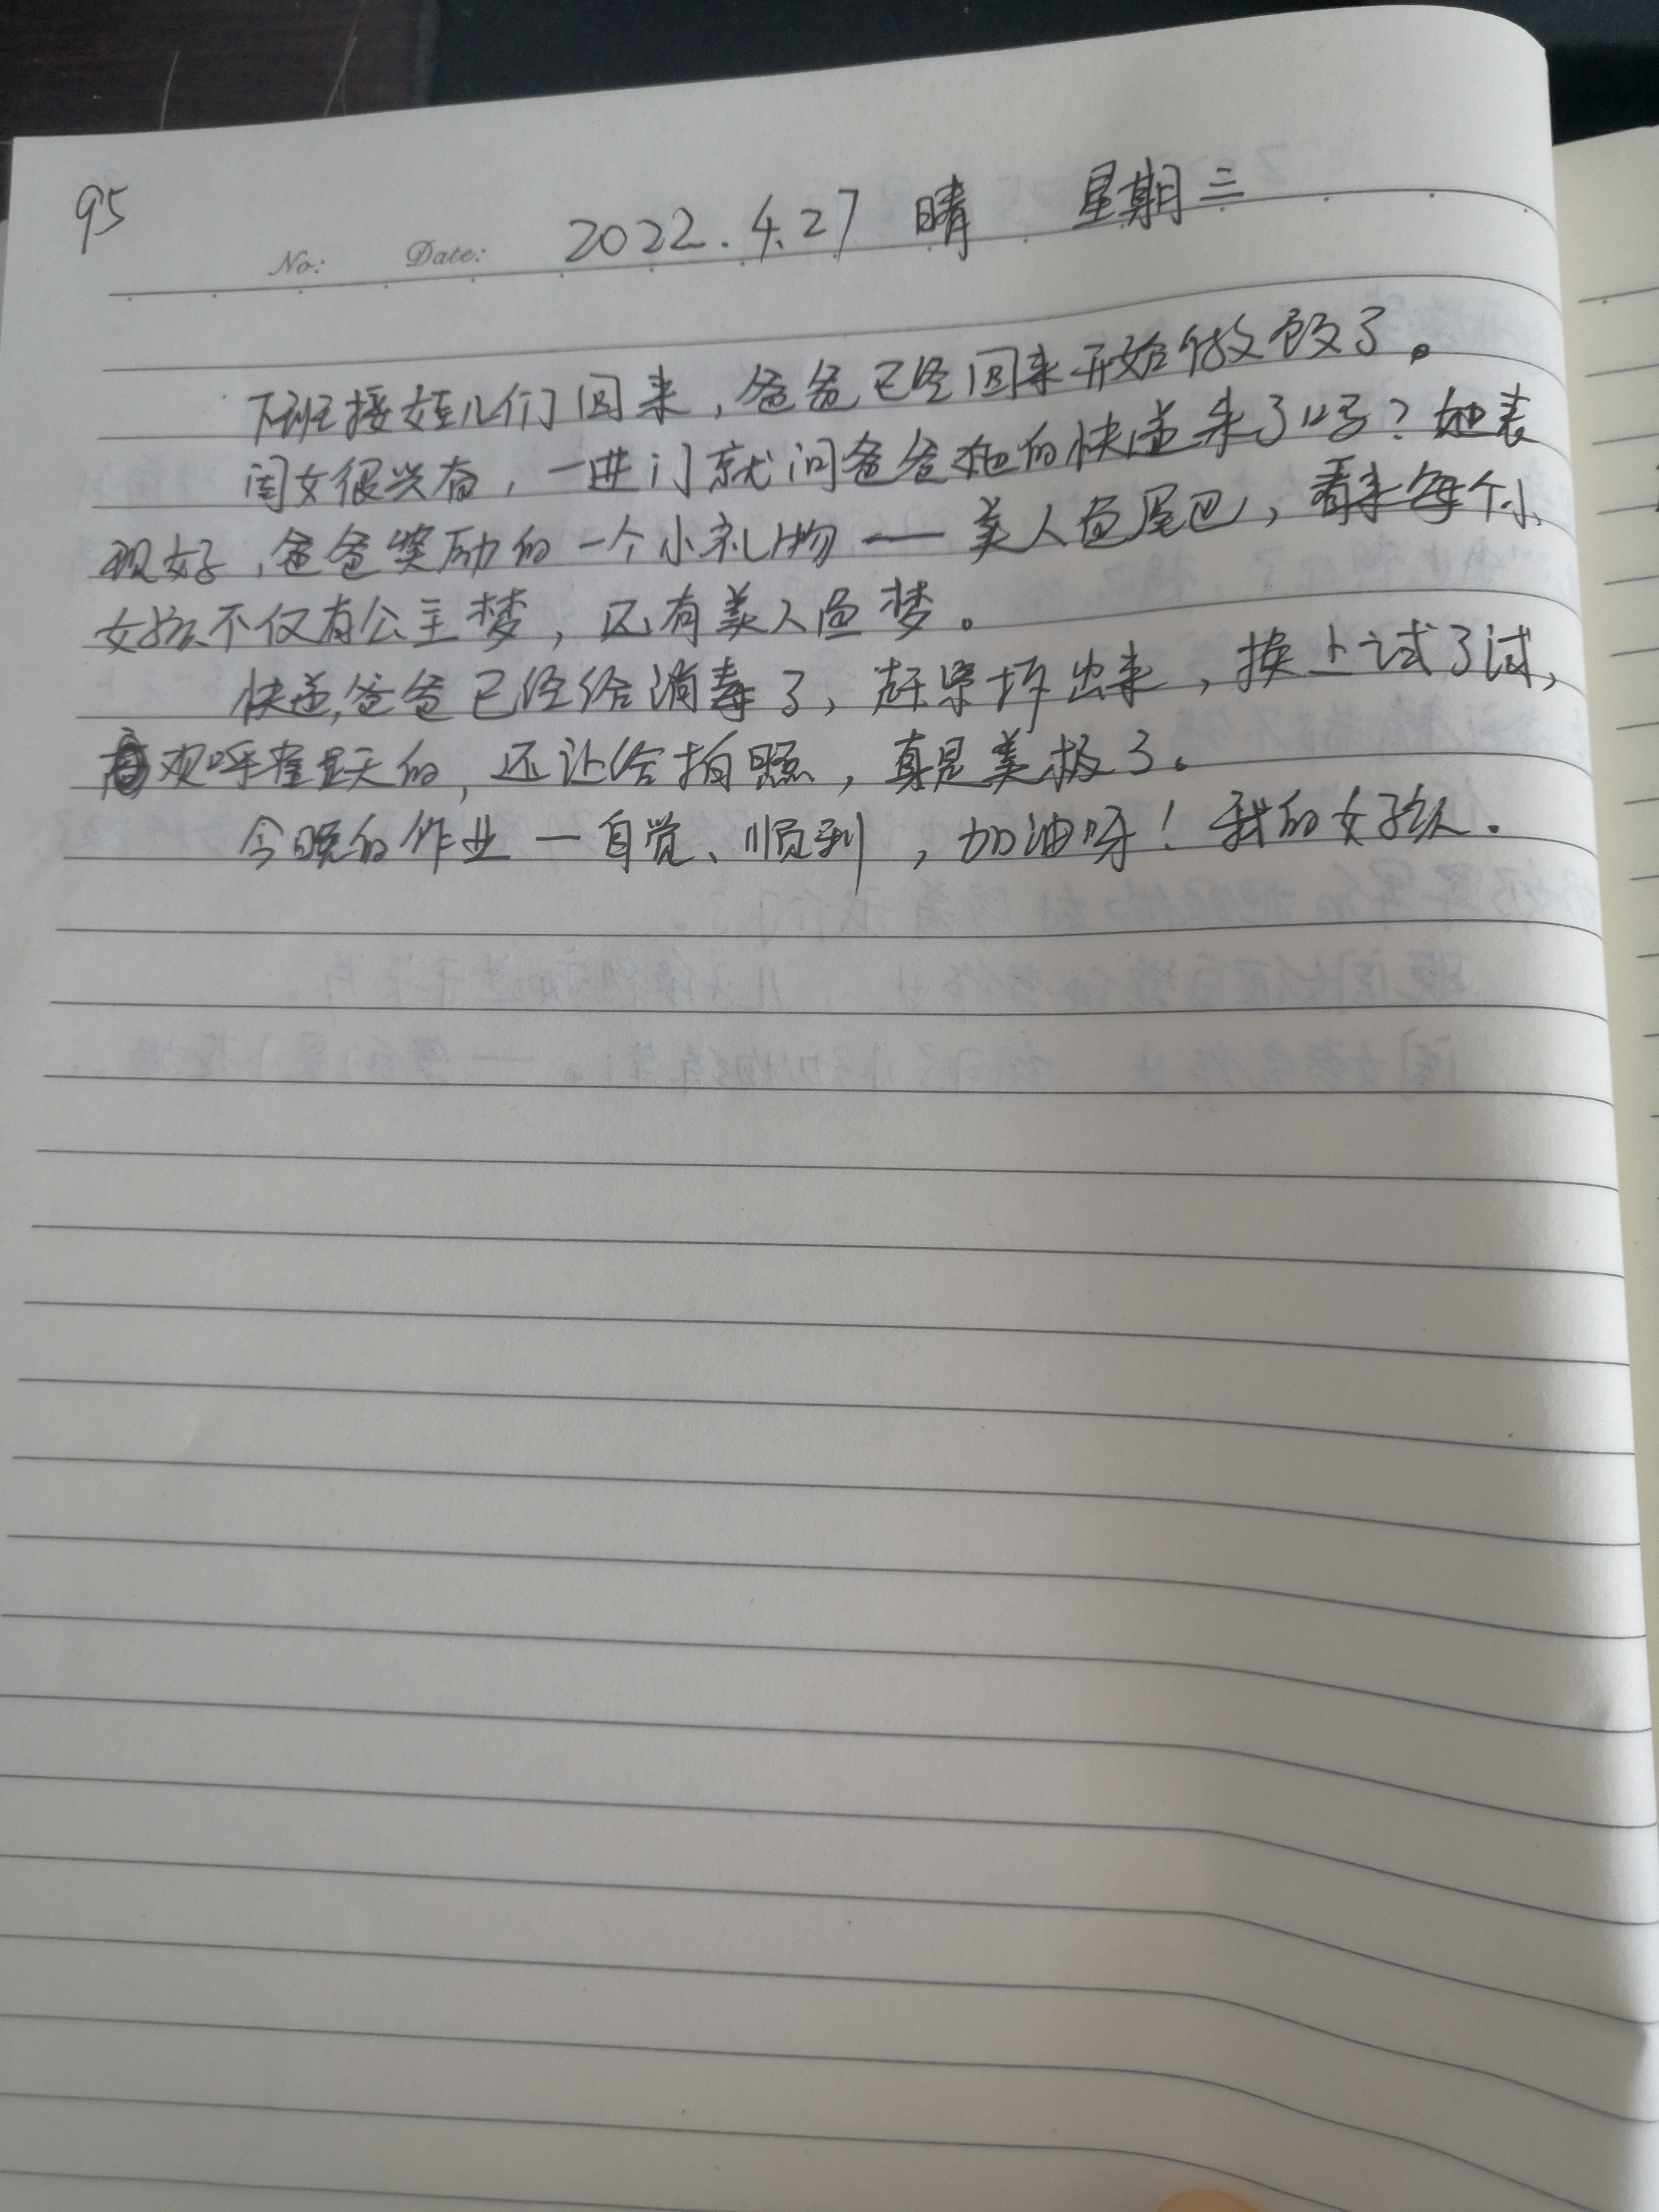 95
No: Date: 2022.4.27 晴 星期三
下班接娃儿们回来，爸爸已经回来开始做饭了。
闺女很兴奋，一进门就问爸爸她的快递来了吗？她表
现好，爸爸奖励的一个小礼物——美人鱼尾巴，看来每个小
女孩不仅有公主梦，还有美人鱼梦。
快递，爸爸已经给消毒了，赶紧拆出来，换上试了试，
欢呼雀跃的，还让给拍照，真是美极了。
今晚的作业一自觉、顺利，加油呀！我的女孩儿.